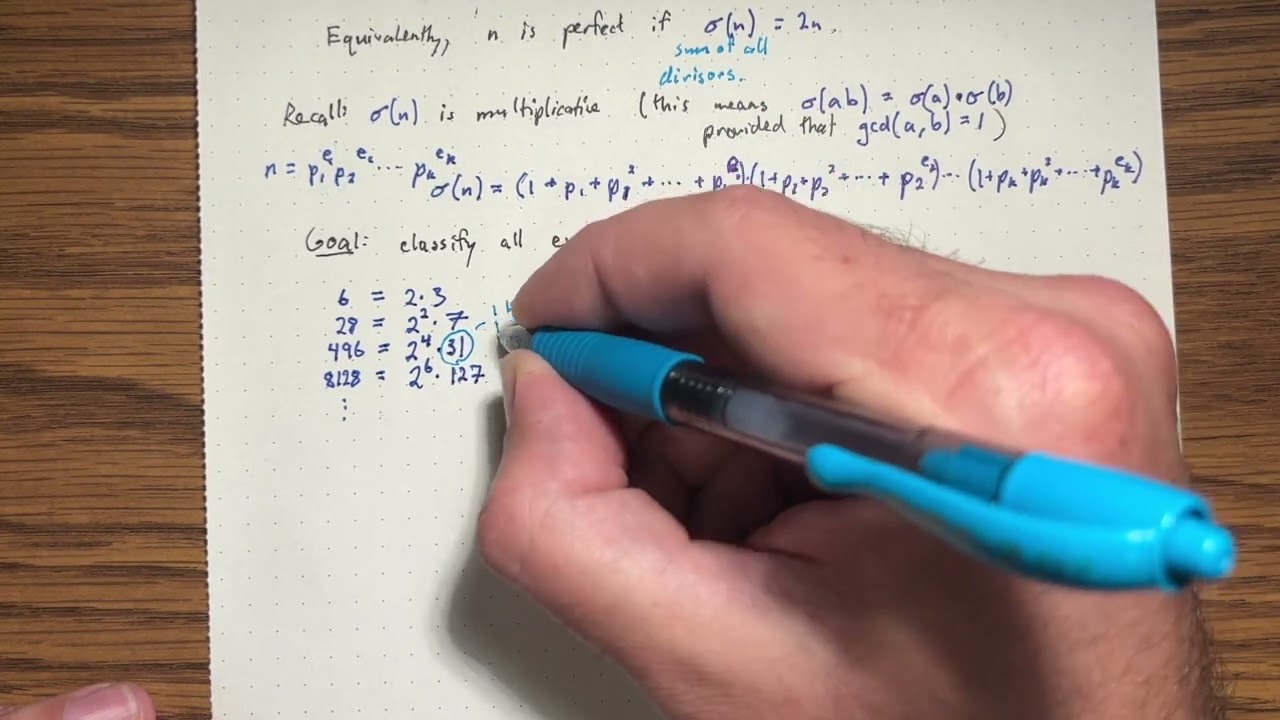 Equivalently, n is perfect if σ(n) = 2n.
sum of all
divisors.
Recall: σ(n) is multiplicative (this means σ(ab) = σ(a)·σ(b)
provided that gcd(a,b) = 1)
n = p₁^e₁ p₂^e₂ ··· pₖ^eₖ
σ(n) = (1 + p₁ + p₁² + ··· + p₁^e₁)·(1 + p₂ + p₂² + ··· + p₂^e₂) ··· (1 + pₖ + pₖ² + ··· + pₖ^eₖ)
Goal: classify all
6 = 2·3
28 = 2²·7
496 = 2⁴·31
8128 = 2⁶·127
⋮